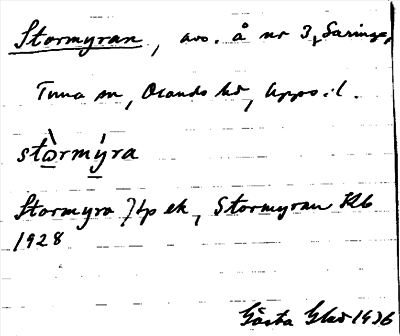 Stormyran, avs. å nr 3, Saringe,
Tuna sn, Olands hd, Upps. l.
stòrmýra
Stormyra Hp ek, Stormyran Klb
1928
Gösta 1936